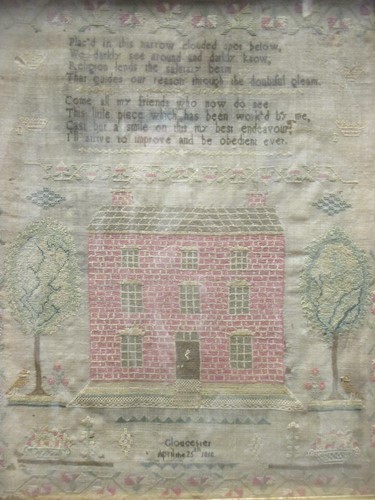 Plac'd in this narrow clouded spot below,
We darkly see around and darkly know,
Religion lends the salutary beam
That guides our reason through the doubtful gleam.
Come all my friends who now do see
This little piece which has been work'd by me,
Cast but a smile on this my best endeavour,
I'll strive to improve and be obedient ever.
Gloucester
April